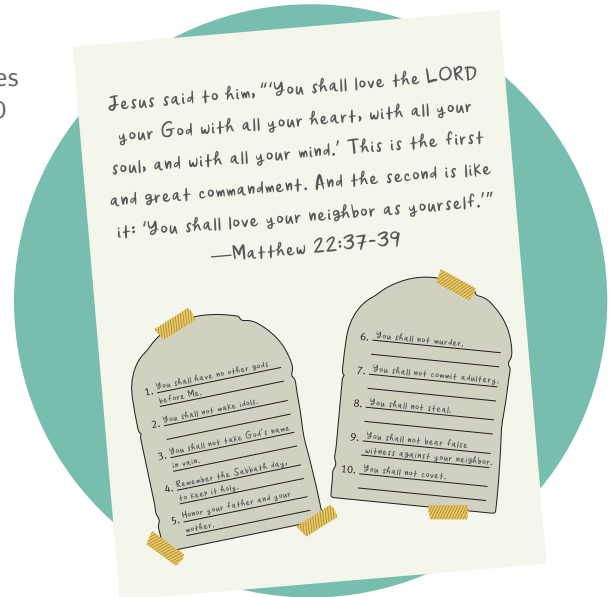 es
0
Jesus said to him, “‘You shall love the LORD
your God with all your heart, with all your
soul, and with all your mind.’ This is the first
and great commandment. And the second is like
it: ‘You shall love your neighbor as yourself.’”
—Matthew 22:37-39
1. You shall have no other gods
before Me.
2. You shall not make idols.
3. You shall not take God's name
in vain.
4. Remember the Sabbath day,
to keep it holy.
5. Honor your father and your
mother.
6. You shall not murder.
7. You shall not commit adultery.
8. You shall not steal.
9. You shall not bear false
witness against your neighbor.
10. You shall not covet.